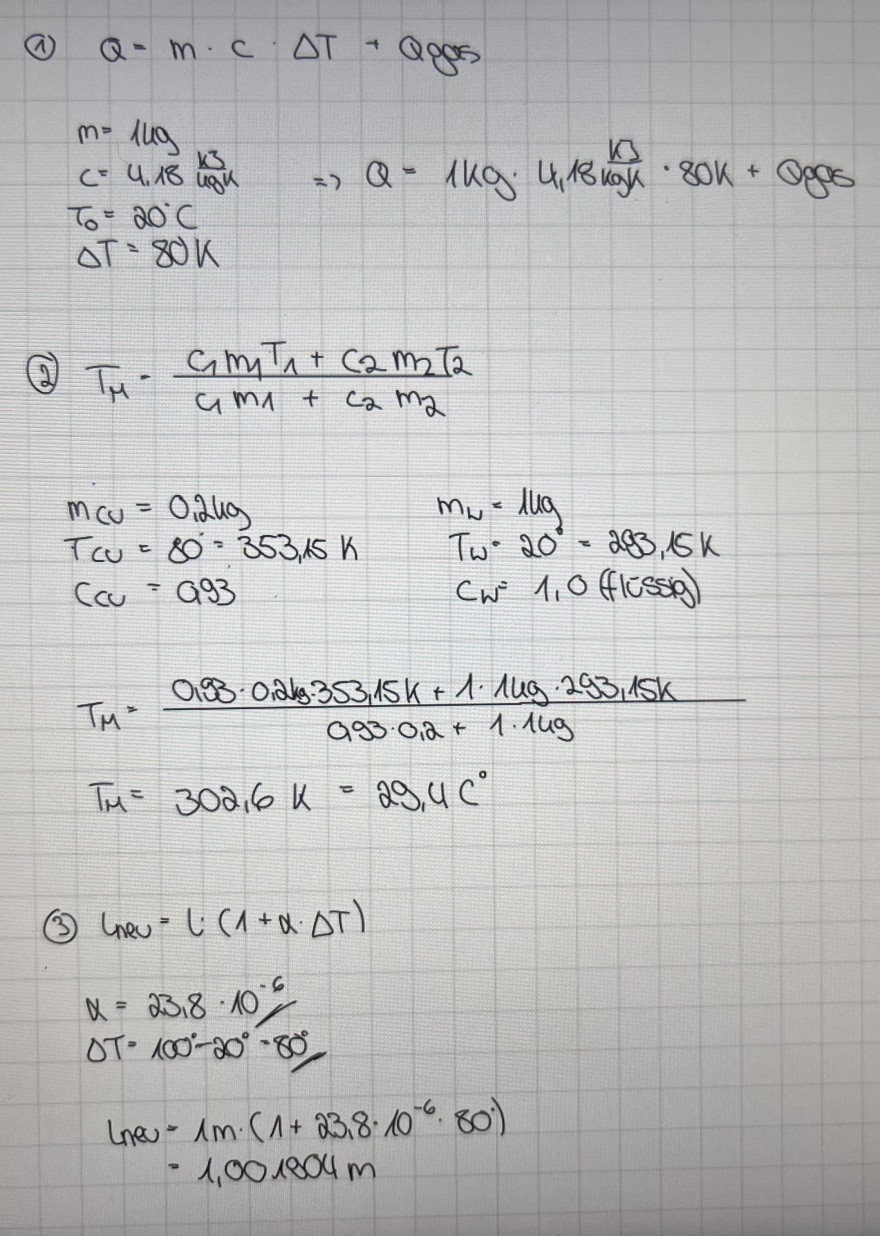 ① Q = m · c · ΔT + Qgas
m = 1kg
c = 4,18 kJ/kgK => Q = 1kg · 4,18 kJ/kgK · 80K + Qgas
T₀ = 20°C
ΔT = 80K
② T_M = (c₁m₁T₁ + c₂m₂T₂) / (c₁m₁ + c₂m₂)
m_CU = 0,2kg m_W = 1kg
T_CU = 80° = 353,15 K T_W = 20° = 293,15K
C_CU = 0,93 C_W = 1,0 (flüssig)
T_M = (0,93 · 0,2kg · 353,15K + 1 · 1kg · 293,15K) / (0,93 · 0,2 + 1 · 1kg)
T_M = 302,6 K = 29,4 C°
③ Lneu = L · (1 + α · ΔT)
α = 23,8 · 10⁻⁶
ΔT = 100° - 20° = 80°
Lneu = 1m · (1 + 23,8 · 10⁻⁶ · 80°)
= 1,001904m